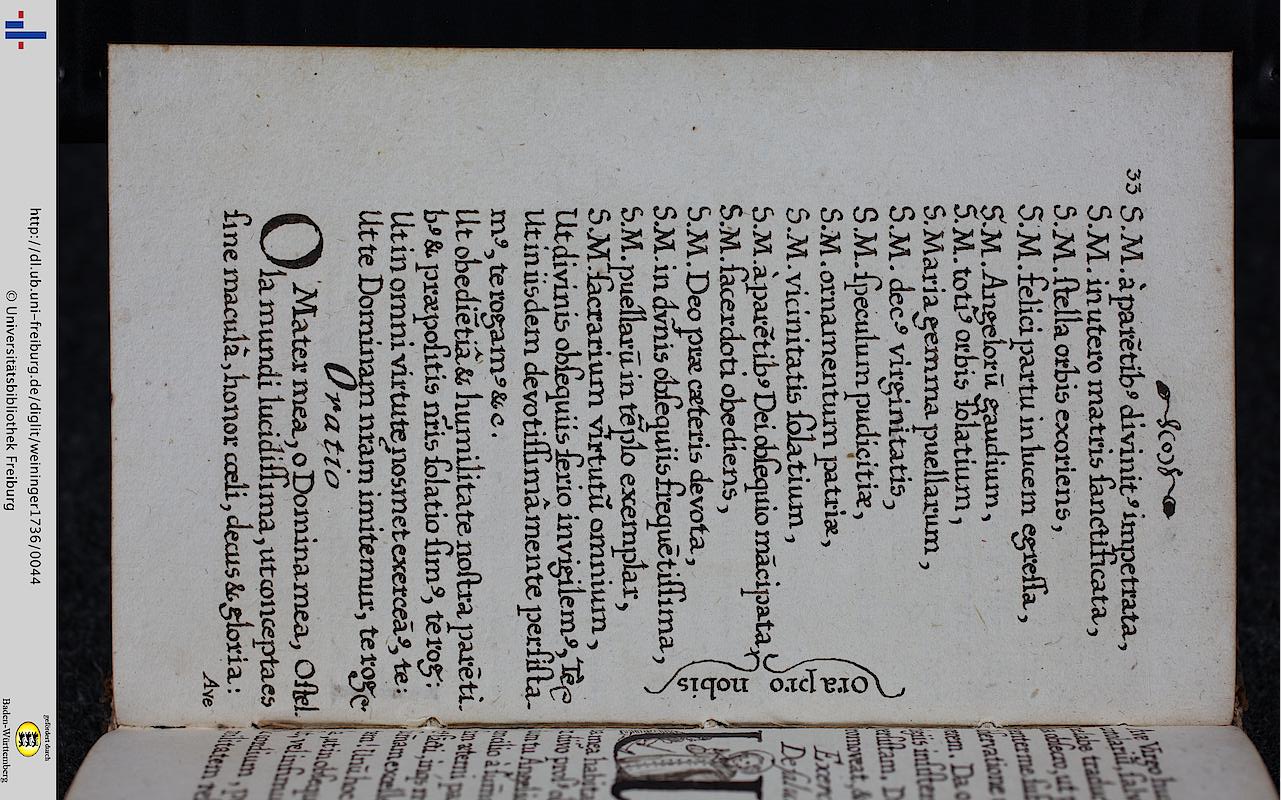 33
(o)
S. M. à parētib⁹ divinit⁹ impetrata,
S. M. in utero matris sanctificata,
S. M. stella orbis exoriens,
S. M. felici partu in lucem egressa,
S. M. Angelorū gaudium,
S. M. toti⁹ orbis solatium,
S. Maria gemma puellarum,
S. M. dec⁹ virginitatis,
S. M. speculum pudicitiæ,
S. M. ornamentum patriæ,
S. M. vicinitatis solatium,
S. M. à parētib⁹ Dei obsequio mācipata,
S. M. sacerdoti obediens,
S. M. Deo præ cæteris devota,
S. M. in dvnis obsequiis frequētissima,
S. M. puellarū in tēplo exemplar,
S. M. sacrarium virtutū omnium,
ora pro nobis
Ut divinis obsequiis serio invigilem⁹, Te
Ut in iisdem devotissimâ mente persista-
m⁹, te rogam⁹ &c.
Ut obediētiâ & humilitate nostra parēti-
b⁹ & præpositis nr̄is solatio sim⁹, te rog:
Ut in omni virtute nosmet exerceā⁹, te:
Ut te Dominam nram imitemur, te rog
Oratio
O Mater mea, o Domina mea, O stel-
la mundi lucidissima, ut concepta es
sine maculâ, honor cœli, decus & gloria:
Ave
http://dl.ub.uni-freiburg.de/diglit/weininger1736/0044
© Universitätsbibliothek Freiburg
gefördert durch
Baden-Württemberg